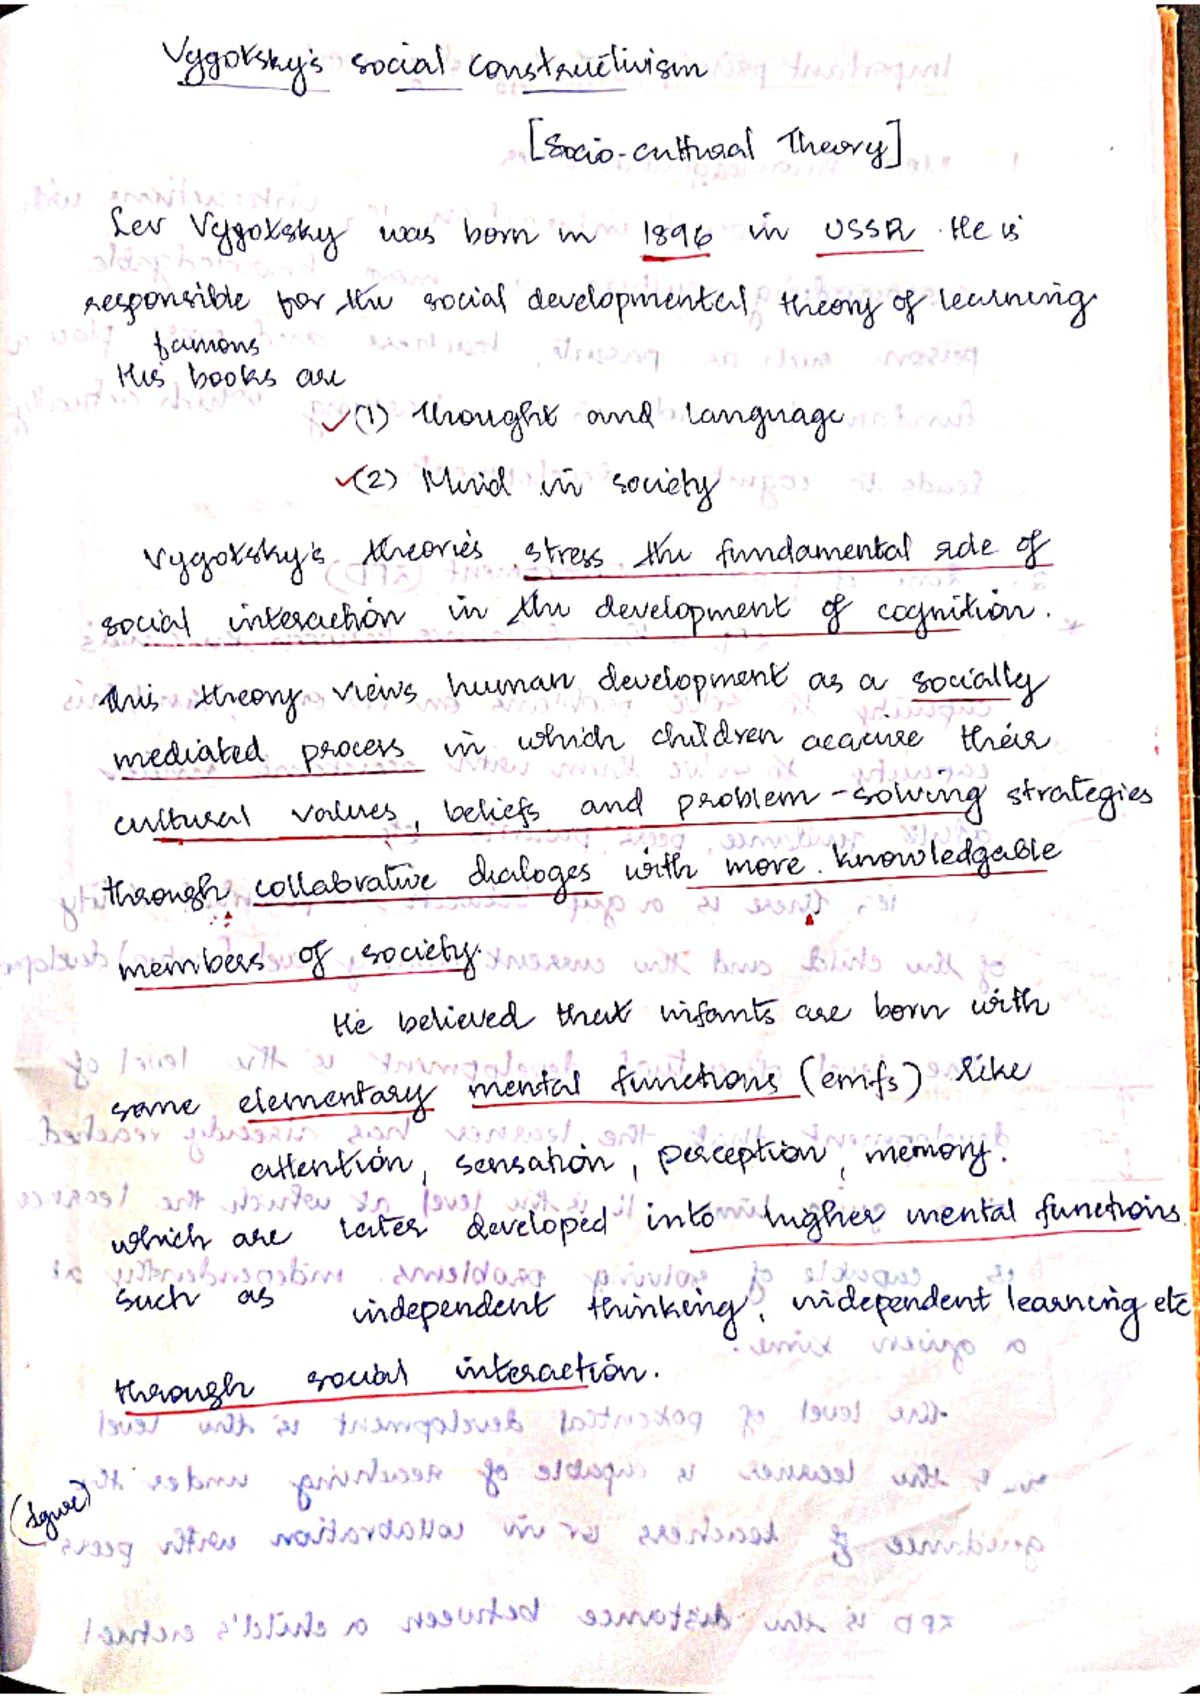 Vygotsky's social constructivism
[Socio-cultural Theory]
Lev Vygotsky was born in 1896 in USSR. He is
responsible for the social developmental theory of learning
famous
His books are
(1) Thought and language
(2) Mind in society
Vygotsky's theories stress the fundamental role of
social interaction in the development of cognition.
This theory views human development as a socially
mediated process in which children acquire their
cultural values, beliefs and problem-solving strategies
through collabrative dialoges with more knowledgable
members of society.
He believed that infants are born with
some elementary mental functions (emfs) like
attention, sensation, perception, memory.
which are later developed into higher mental functions
such as independent thinking, independent learning etc
through social interaction.